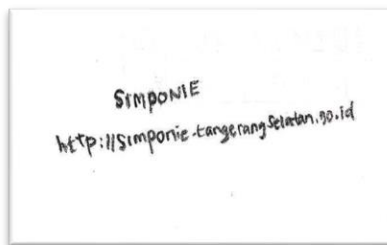 SIMPONIE
http://simponie-tangerangselatan.go.id